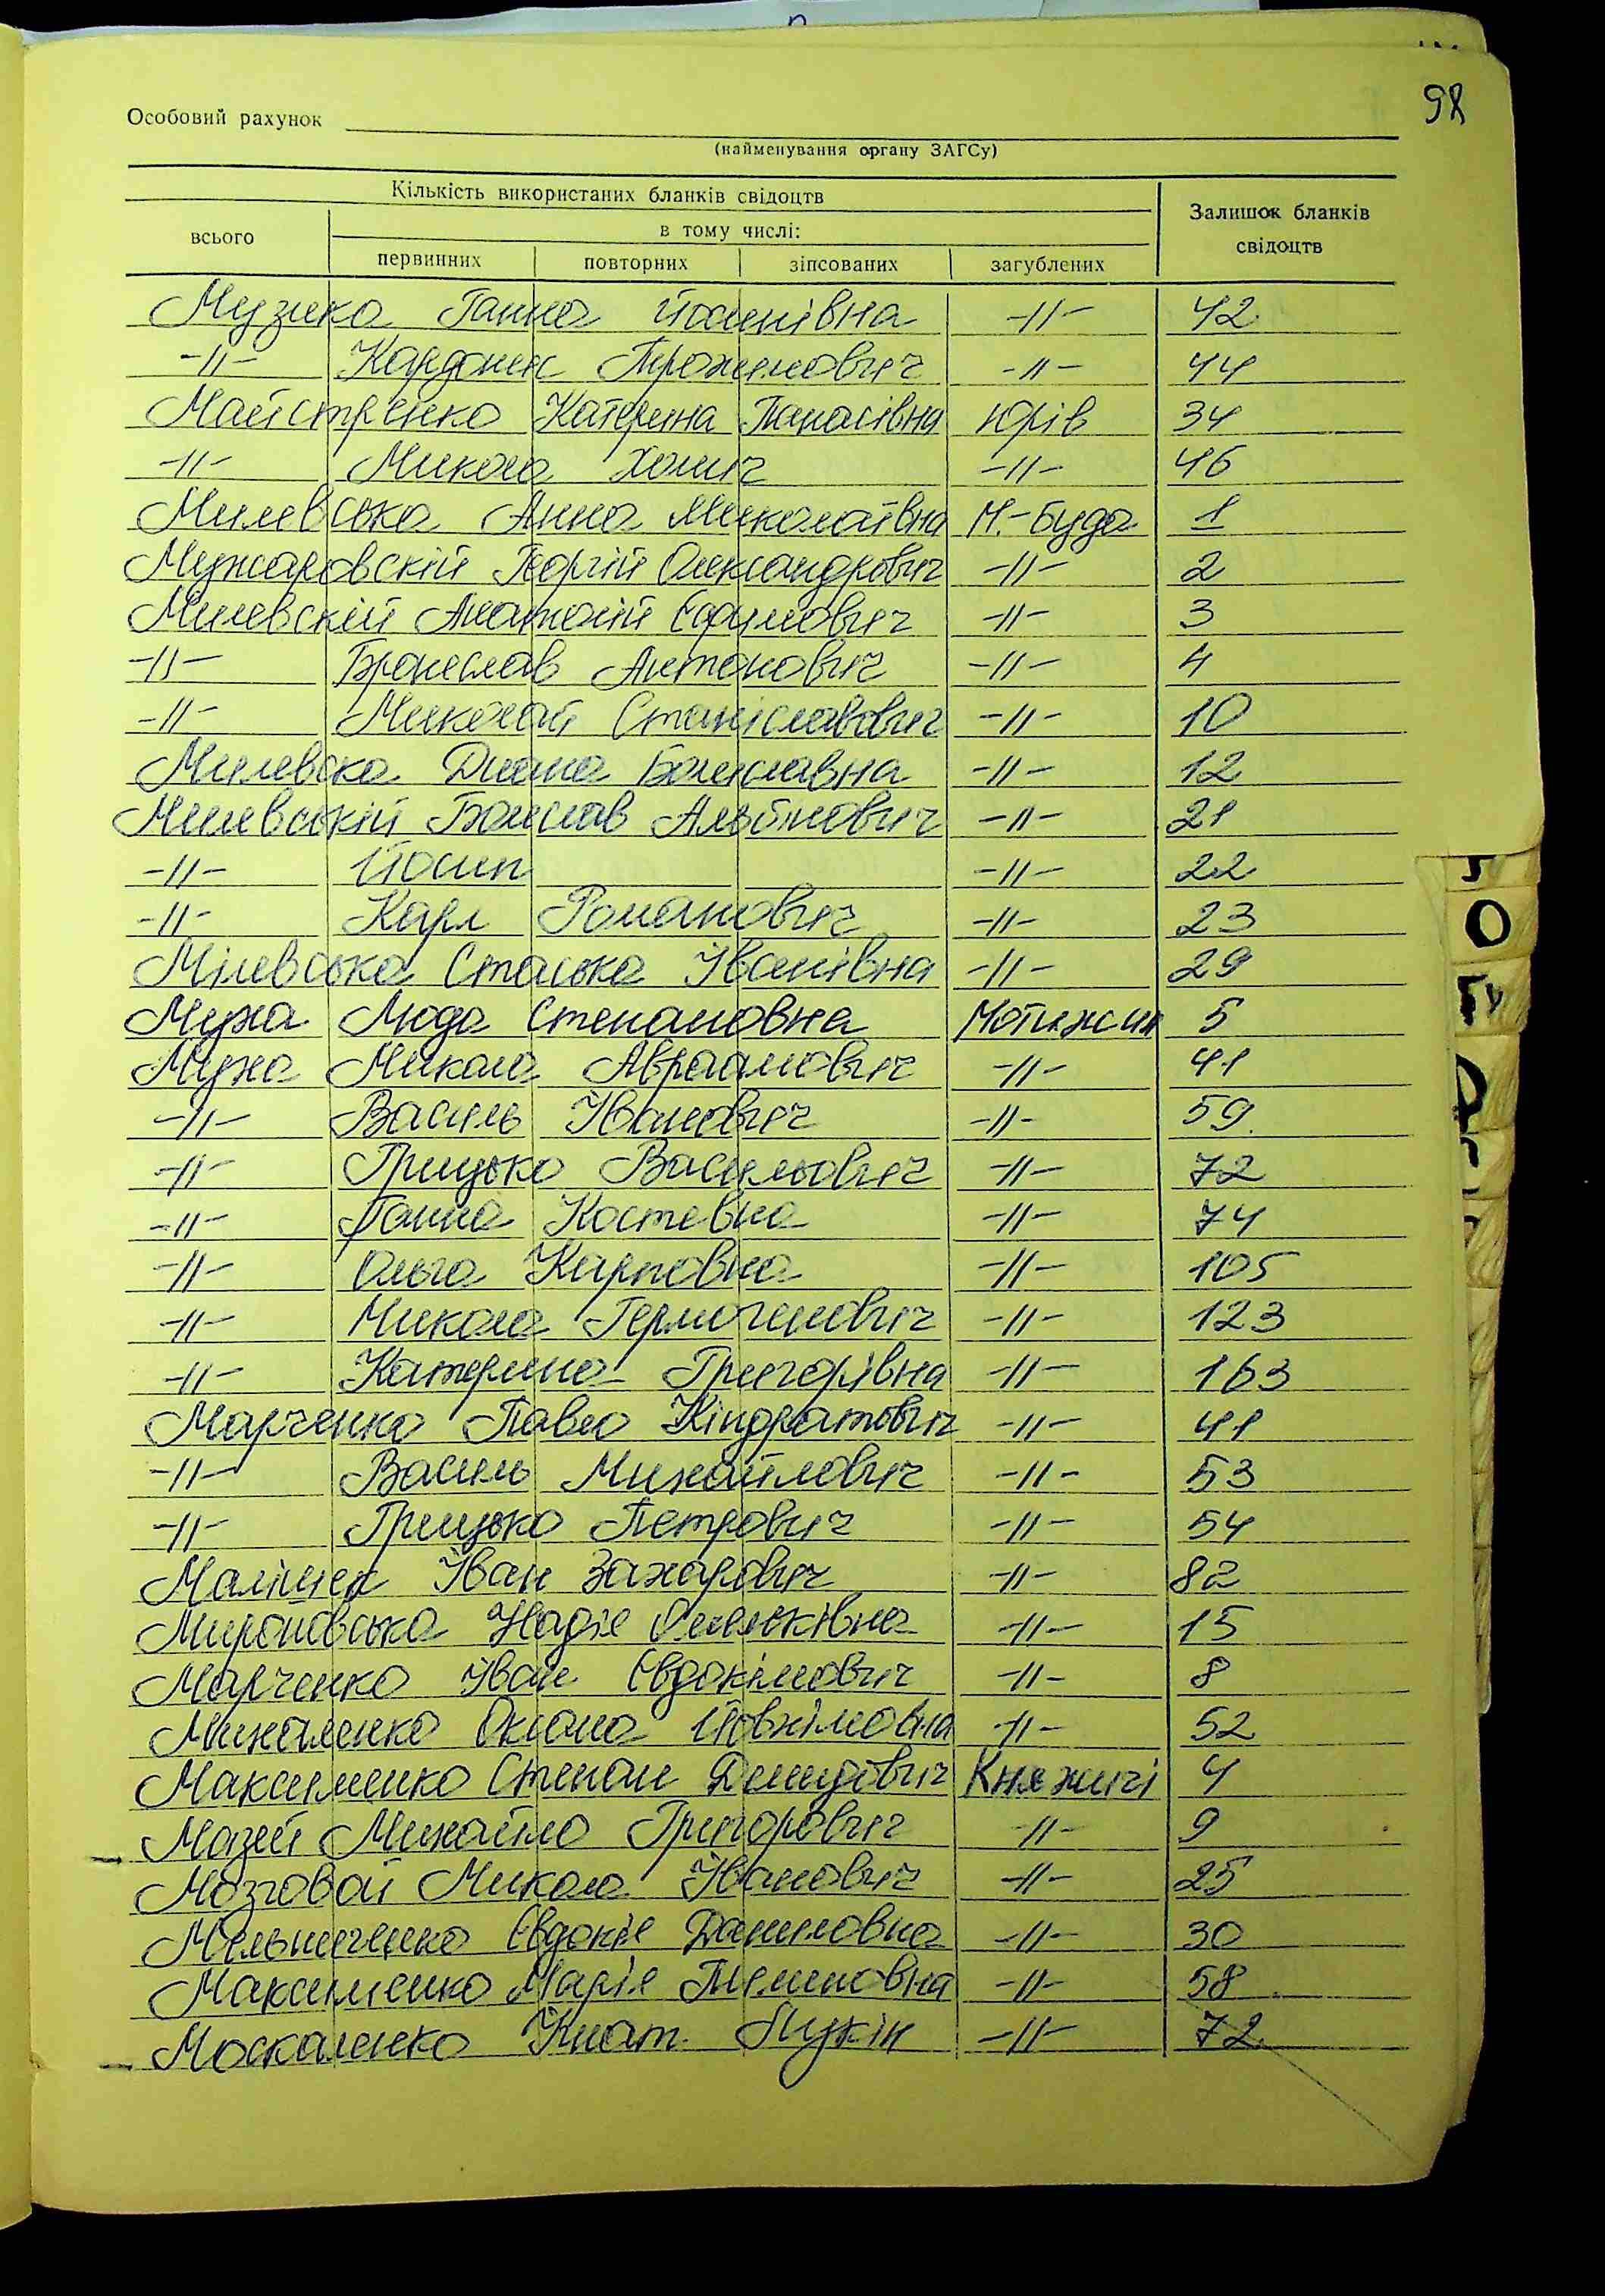 98
Особовий рахунок
(найменування органу ЗАГСу)
Кількість використаних бланків свідоцтв
Залишок бланків свідоцтв
всього
в тому числі:
первинних повторних зіпсованих загублених
Музика Ганна Йосипівна -//- 42
-//- Трохимович -//- 44
Майстренко Катерина Панасівна Юрів 34
-//- Микола Хомич -//- 46
Милевська Анна Миколаївна М.-Буда 1
Мужаровскій Георгій Олександрович -//- 2
Милевскій Анатолій Єфимович -//- 3
-//- Бронеслав Антонович -//- 4
-//- Миколай Станіславович -//- 10
Милевска Диана Болиславна -//- 12
Милевській Болислав Альбінович -//- 21
-//- Йосип -//- 22
-//- Карл Романович -//- 23
Мілевська Стаська Іванівна -//- 29
Муха Люда Степановна Мотижин 5
Муха Микола Авраамович -//- 41
-//- Василь Іванович -//- 59
-//- Грицько Васильович -//- 72
-//- Ганна Костевна -//- 74
-//- Ольга Карповна -//- 105
-//- Микола Гермогенович -//- 123
-//- Катерина Григорівна -//- 163
Марченко Павло Кіндратович -//- 41
-//- Василь Михайлович -//- 53
-//- Грицько Петрович -//- 54
Іван Захарович -//- 82
Мироновська Надія Омельківна -//- 15
Марченко Іван Євдокімович -//- 8
Михаленко Оксана -//- 52
Максименко Степан Демидович Княжичі 4
Мазей Михайло Григорович -//- 9
Мозговой Микола Іванович -//- 25
Мельниченко Євдокія Даниловна -//- 30
Максименко Марія -//- 58
Москаленко Гнат -//- 72